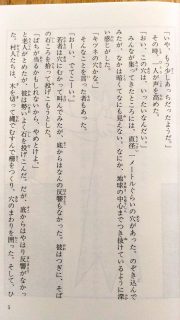 「いや、もう少しあっちだったようだ。」
その時、一人が声を高めた。
「おい、この穴は、いったいなんだい。」
みんなが集ってきたところには、直径一メートルぐらいの穴があった。のぞき込んで
みたが、なかは暗くてなにも見えない。なにか、地球の中心までつき抜けているように深
い感じがした。
「キツネの穴かな。」
そんなことを言った者もあった。
「おーい、でてこーい。」
若者は穴にむかって叫んでみたが、底からはなんの反響もなかった。彼はつぎに、そば
の石ころを拾って投げこもうとした。
「ばちが当るかもしれないから、やめとけよ。」
と老人がとめたが、彼は勢いよく石を投げこんだ。だが、底からはやはり反響がなかっ
た。村人たちは、木を切って縄でむすんで柵をつくり、穴のまわりを囲った。そして、ひ
5